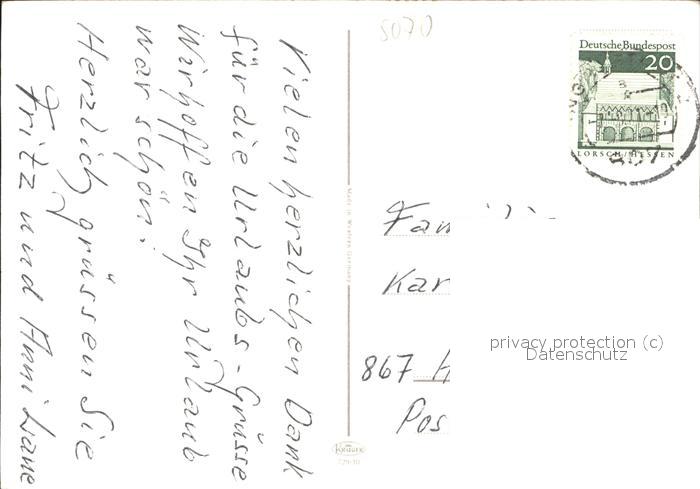 Vielen herzlichen Dank
für die Urlaubs-Grüsse
Wir hoffen Ihr Urlaub
war schön!
Herzlich grüssen Sie
Fritz und Anni Liane
5070
Deutsche Bundespost
20
LORSCH/HESSEN
Made in Western Germany
Krüger
Familie
Kar
867 H
Pos
privacy protection (c)
Datenschutz